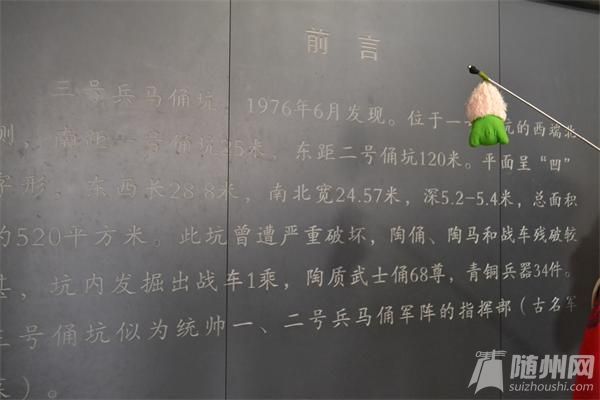 前言
三号兵马俑坑，1976年6月发现。位于一 坑的西端北
侧，南距一号俑坑25米，东距二号俑坑120米。平面呈“凹”
字形，东西长28.8米，南北宽24.57米，深5.2-5.4米，总面积
约520平方米。此坑曾遭严重破坏，陶俑、陶马和战车残破较
甚，坑内发掘出战车1乘，陶质武士俑68尊，青铜兵器34件。
三号俑坑似为统帅一、二号兵马俑军阵的指挥部（古名军
幕）。
随州网
suizhoushi.com